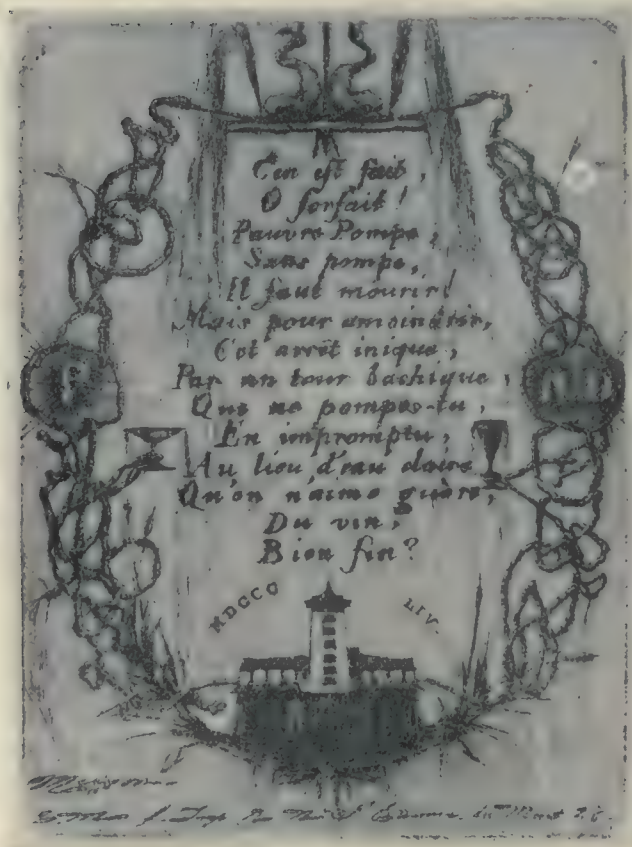 C'en est fait,
O forfait!
Pauvre Pompe,
Sans pompe,
Il faut mourir!
Mais pour amoindrir,
Cet arrêt inique,
Par un tour bachique,
Que ne pompes-tu,
En impromptu,
Au lieu d'eau claire
Qu'on n'aime guère,
Du vin,
Bien fin?
MDCCC LIV.